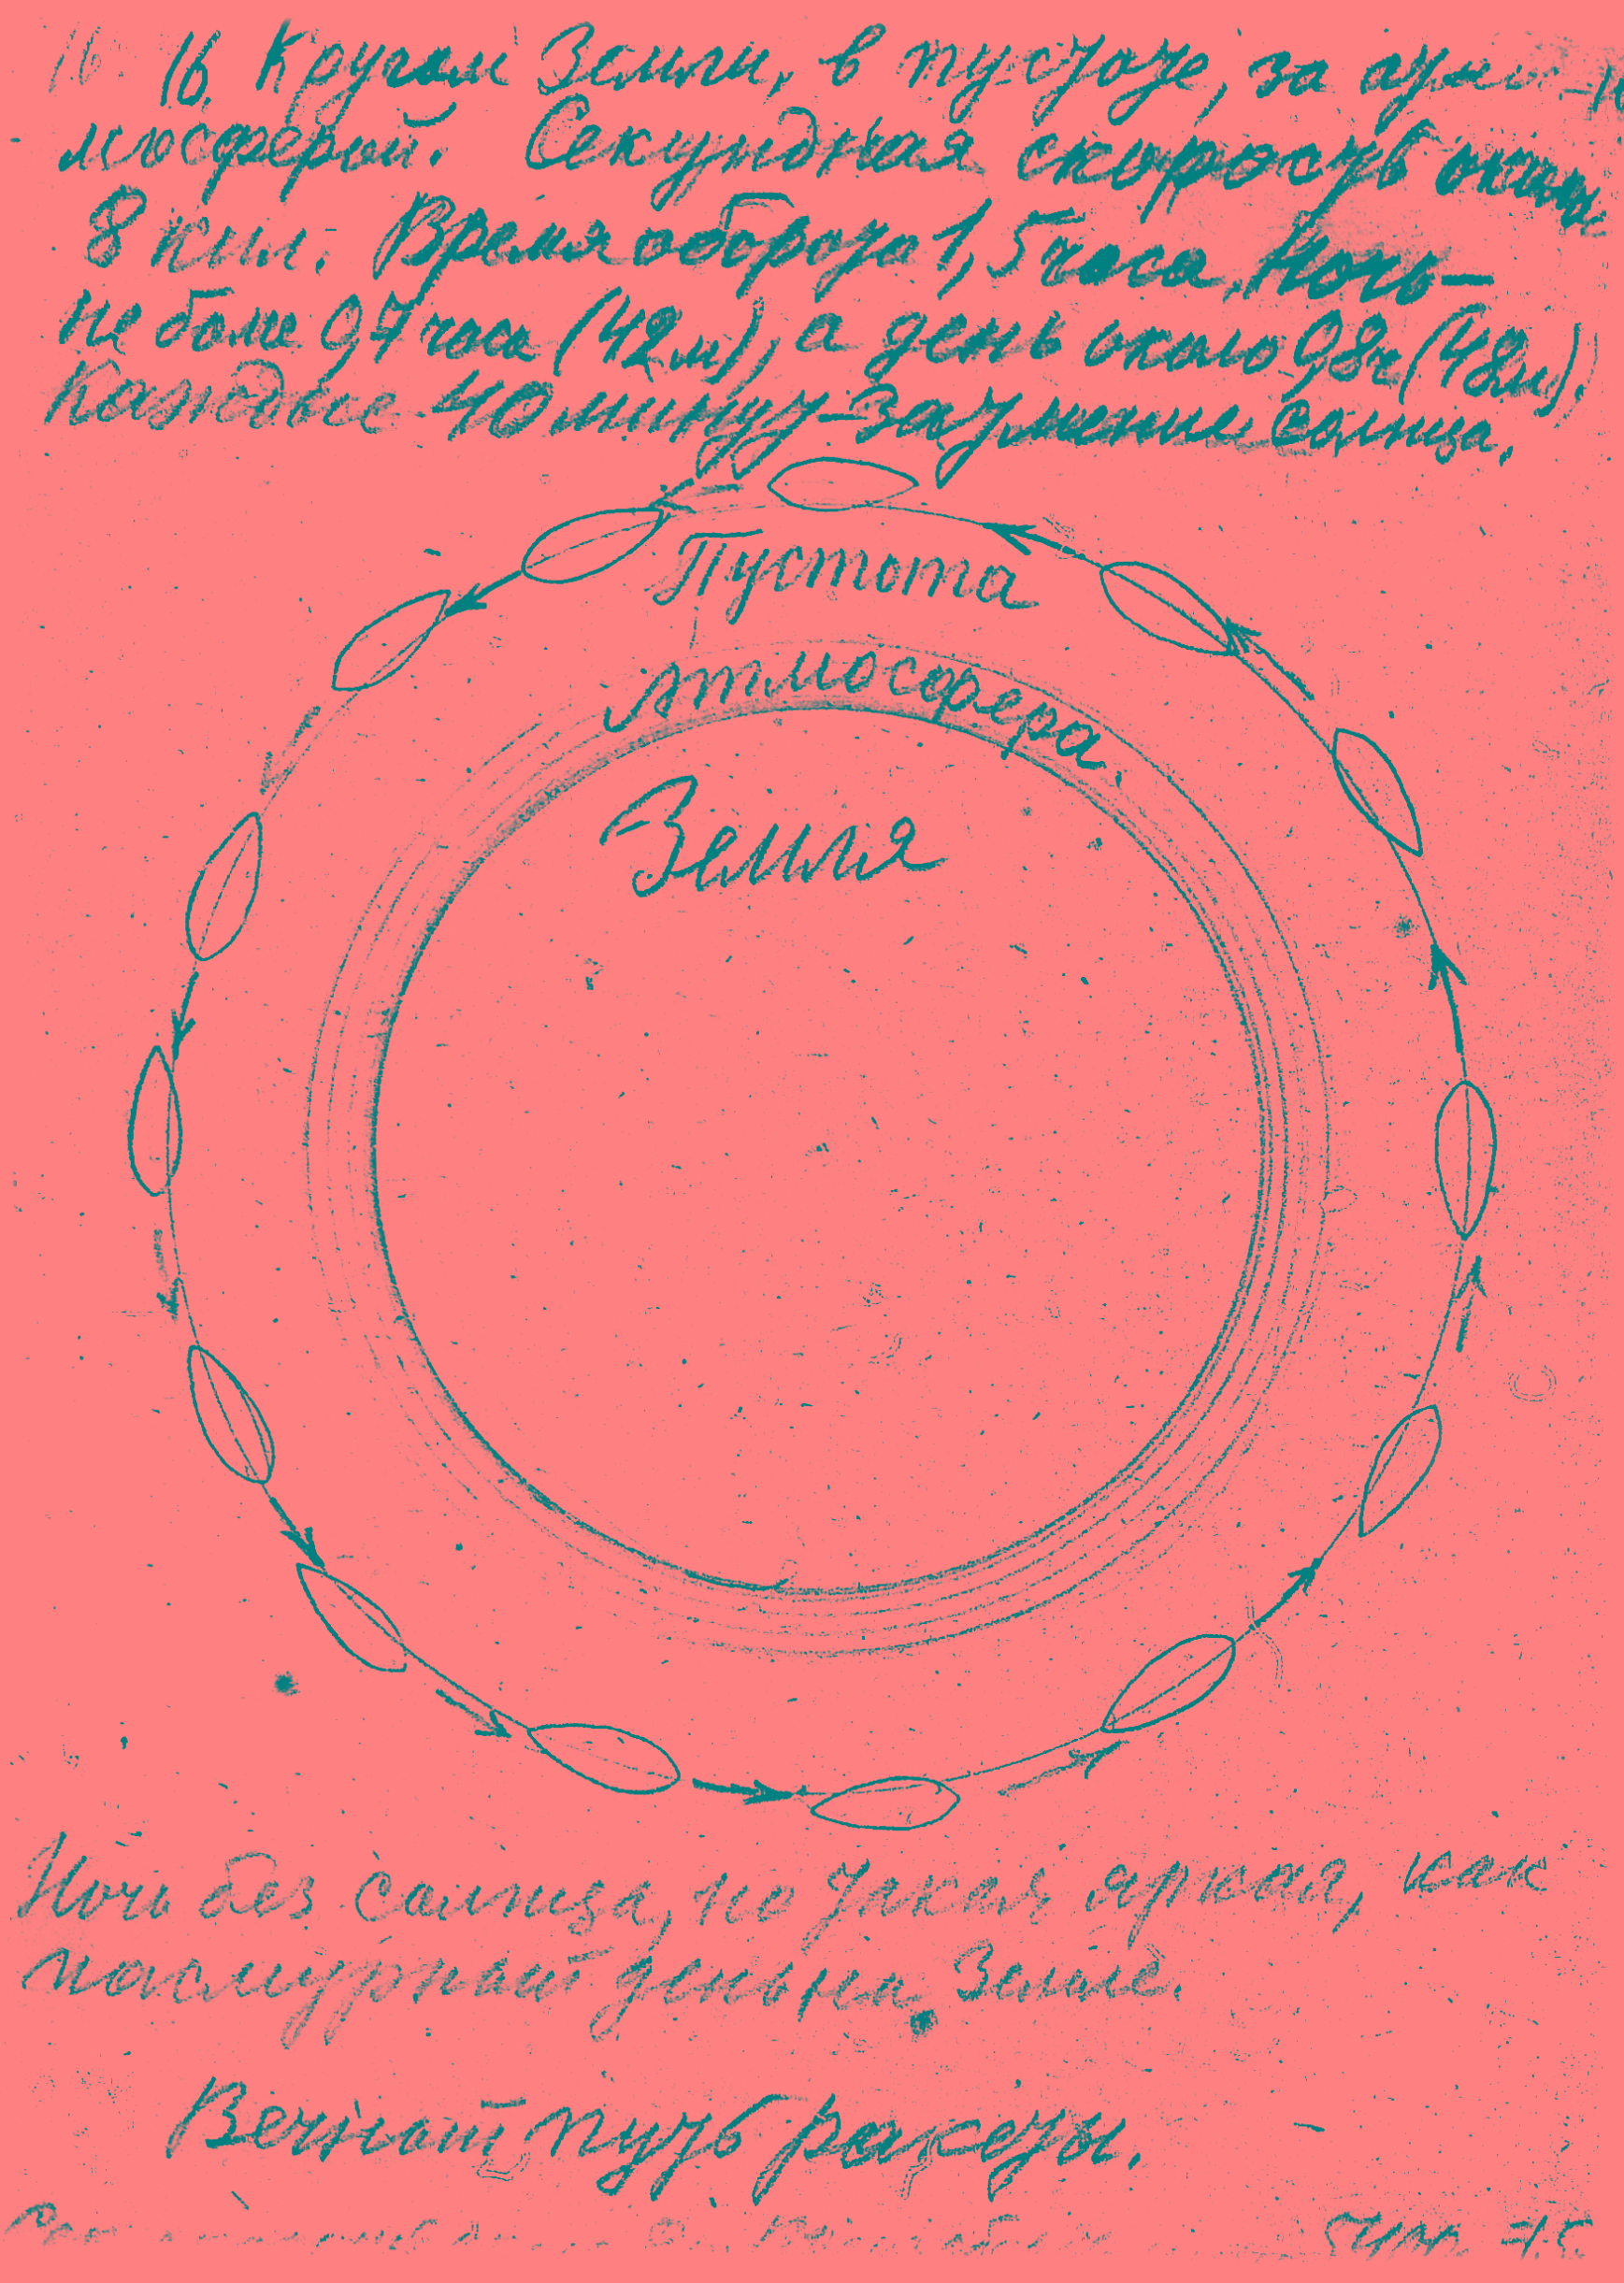 16. 16. Кругом Земли, в пустоте, за атмо-
мосферой. Секундная скорость около
8 кил. Время оборота 1,5 часа. Ночь—
не более 0,7 часа (42 м), а день около 0,8 ч (48 м).
Каждые 40 минут—затмение солнца.
Пустота
Атмосфера.
Земля
Ночь без солнца, но такая яркая, как
пасмурный день на Земле.
Вечный путь ракеты.